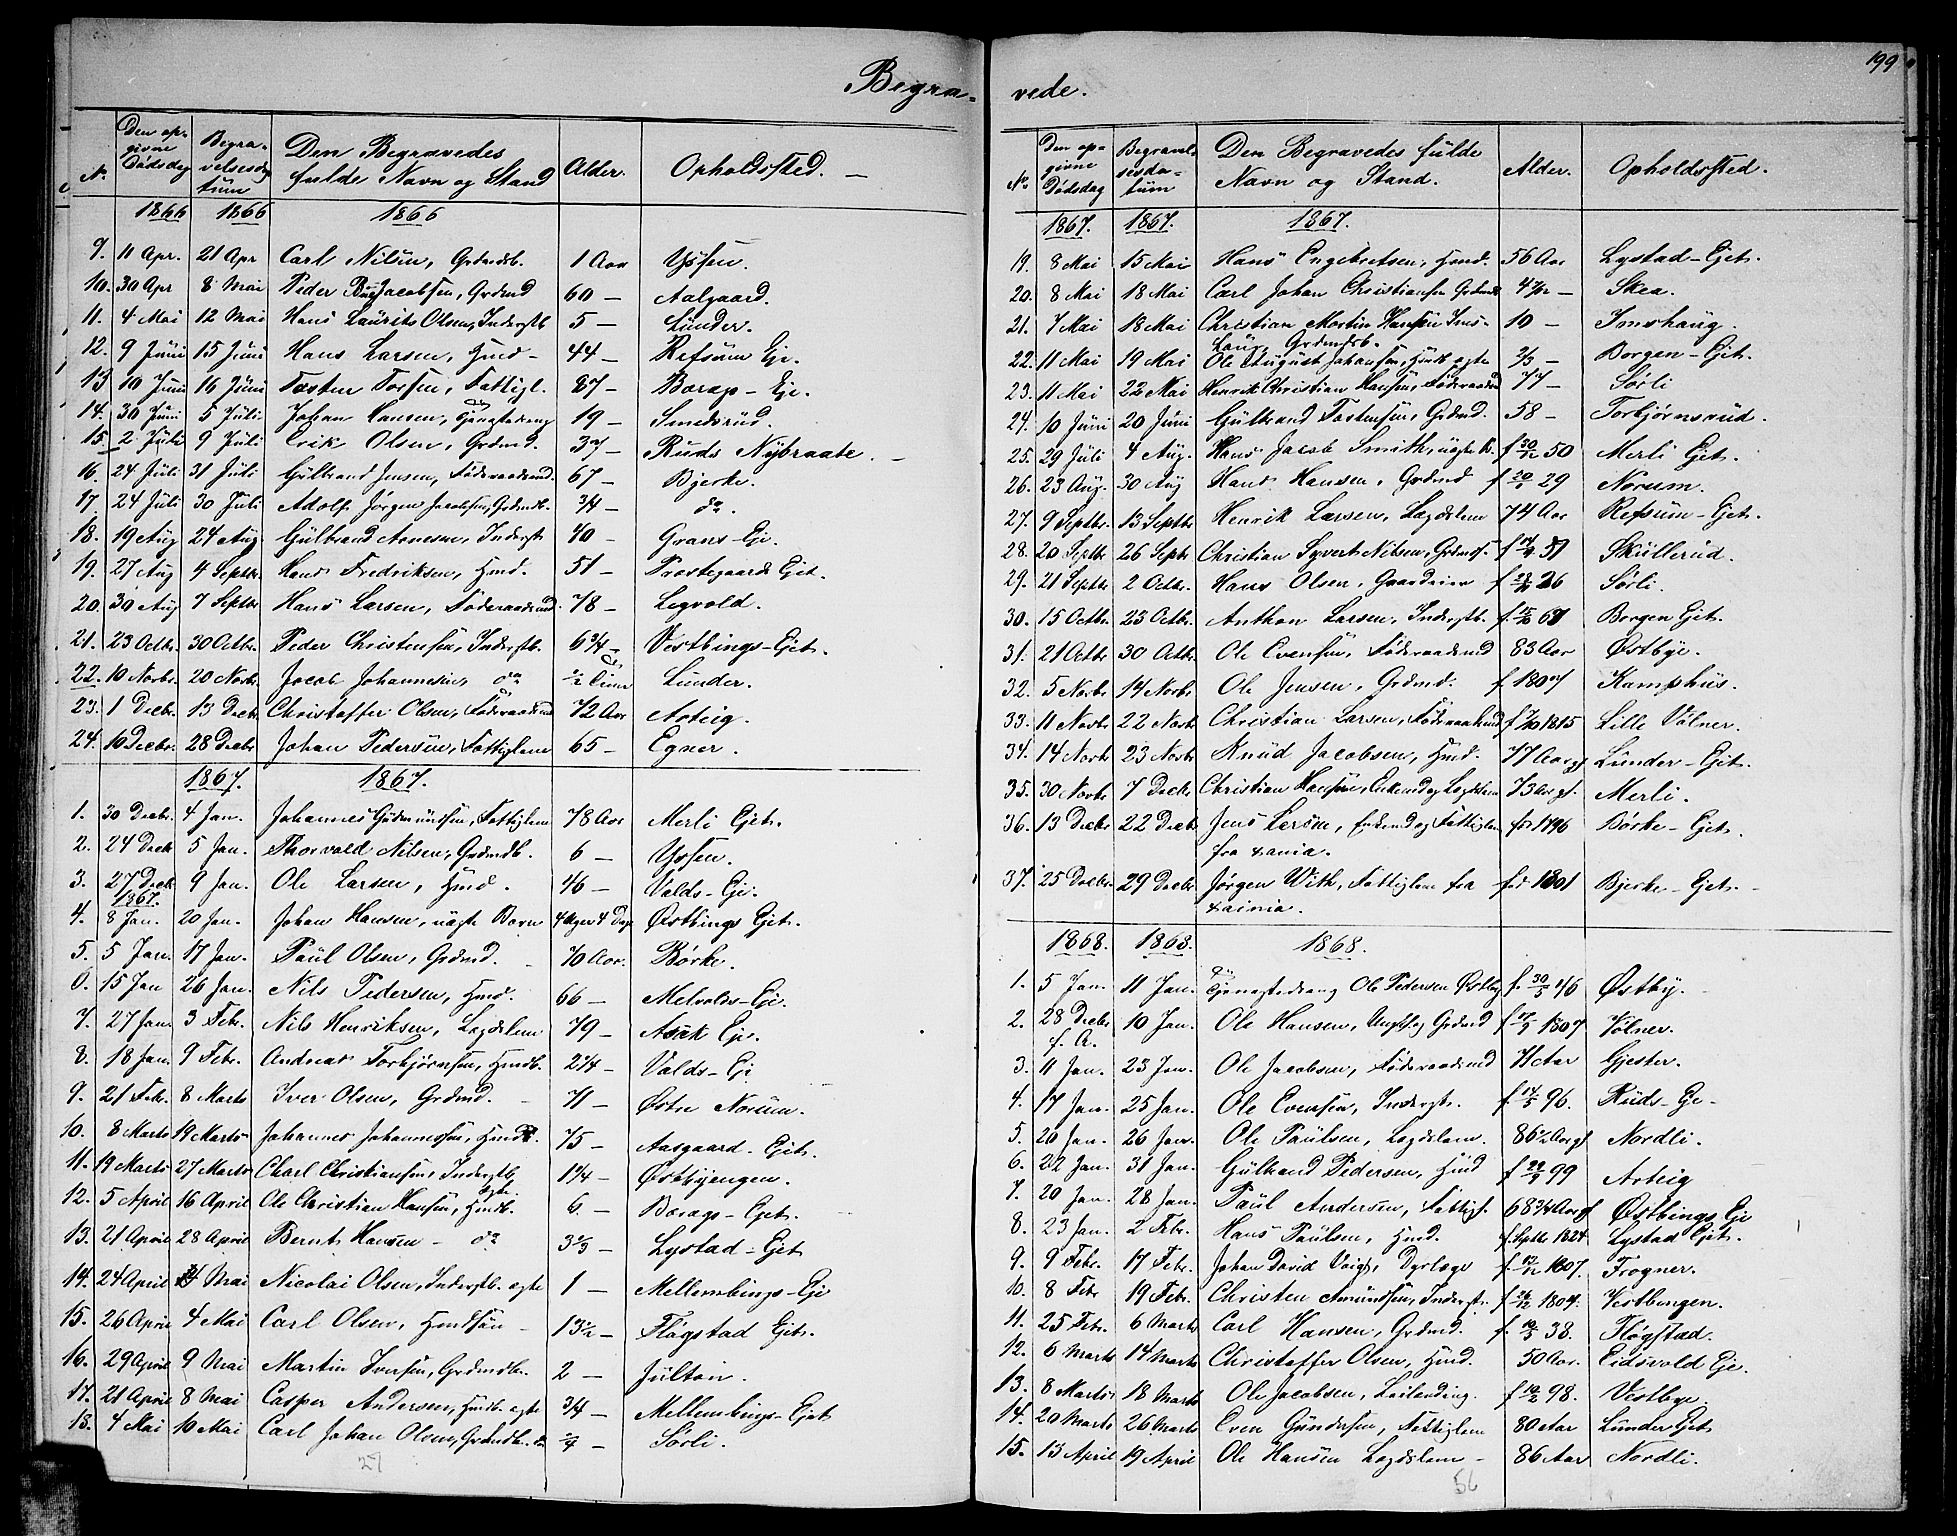 199
Begra- vede.
N. Den op-givne Dødsdag Begra-velsesda-tum Den Begravedes fulde Navn og Stand Alder. Opholdssted. —
1866 1866 1866
9. 11 Apr. 21 Apr Carl Nilsen, Grdmdb. 1 Aar Yssen.
10. 30 Apr 8 Mai Peder Jacobsen, Grdmd 60 — Aalgaard.
11. 4 Mai 12 Mai Hans Laurits Olsen, Inderstb 5 — Lunder.
12. 9 Juni 15 Juni Hans Larsen, Hmd — 44 — Refsum Eje.
13 10 Juni 16 Juni Tosten Tossen, Fattigl. 87 — Børap — Eje.
14. 30 Juni 5 Juli Johan Hansen, Tjenestedreng 19 — Smedsrud.
15. 2 Juli 9 Juli Erik Olsen, Grdmd. 37 — Ruds Nybraate. —
16. 24 Juli 31 Juli Gulbrand Jensen, Føderaadsmd. 67 — Bjerke.
17. 24 Juli 30 Juli Adolf Jørgen Jacobsen, Grdmdb. 3/4 — do.
18. 19 Aug 24 Aug. Gulbrand Arnesen, Inderst 40 — Grans — Eje.
19. 27 Aug 4 Septbr. Hans Fredriksen, Hmd. 51 — Prestegaards Ejet.
20. 30 Aug 7 Septbr Hans Larsen, Føderaadsmd. 78 — Legvold.
21. 23 Octbr. 30 Octbr. Peder Christensen, Inderstb. 6 3/4 — Vestbings — Ejet.
22. 10 Novbr. 20 Novbr. Jacob Johannesen, do 1/2 Time Lunder.
23. 1 Decbr. 13 Decbr Christoffer Olsen, Føderaadsmd 72 Aar Arteig.
24. 10 Decbr. 28 Decbr Johan Pedersen, Fattiglem 65 — Egner.
1867. 1867.
1. 30 Decbr. 4 Jan. Johannes Gudmundsen, Fattiglem 78 Aar Merli Ejet.
2. 24 Decb 5 Jan. Thorvald Nilsen, Grdmdb. 6 — Yssen.
3. 27 Decb 9 Jan. Ole Larsen, Hmd. 46 — Valds — Eje.
1867.
4. 8 Jan. 20 Jan. Johan Hansen, uægte Barn 4 Uger 4 Dage Østbings Ejet.
5. 5 Jan. 17 Jan. Paul Olsen, Grdmd. 70 Aar. Børke.
6. 15 Jan 26 Jan. Nils Pedersen, Hmd. 66 — Melvolds — Eje.
7. 27 Jan. 3 Febr. Nils Henriksen, Lægdslem 79 — Ask Eje.
8. 18 Jan. 9 Febr. Andreas Torbjørnsen, Hmdb. 2 1/4 — Valds — Eje
9. 21 Febr. 8 Marts Iver Olsen, Grdmd. 71 — Østre Norum.
10. 8 Marts 19 Marts Johannes Johannessen, Hmd. 75 — Aasgaard. Ejet.
11. 19 Marts 27 Marts Charl Christiansen, Inderstb. 1 1/4 — Østbyengen.
12. 5 April 16 April Ole Christian Hansen, Hmdb. ægte 6 — Børags — Ejet.
13. 21 April 28 April Bernt Hansen — do 3 2/3 — Lystad — Ejet
14. 24 April 4 Mai Nicolai Olsen, Inderstb. ægte 1 — Mellembings — Eje
15. 26 April 4 Mai Carl Olsen, Hmdsøn 13 1/2 — Fløgstad Ejet.
16. 29 April 9 Mai Martin Iversen, Grdmdb. 2 — Julton.
17. 21 April 8 Mai Casper Andersen, Hmdb. ægte 3/4 — Mellembings — Ejet
18. 4 Mai 10 Mai Carl Johan Olsen, Grdmdb. — Sørli.
27
No. Den op-givne Dødsdag Begravel-sesda-tum Den Begravedes fulde Navn og Stand. Alder. Opholdssted.
1867. 1867. 1867.
19. 8 Mai 15 Mai Hans Engebretsen, Hmd. 56 Aar Lystad — Ejet.
20. 8 Mai 18 Mai Carl Johan Christiansen Grdmdb 4 1/2 — Skea.
21. 7 Mai 18 Mai Christian Martin Hansen Ims-haug, Grdmdsb. 10 — Imshaug.
22. 11 Mai 19 Mai Ole August Johansen, Hmdb ægte 2/3 — Borgen — Ejet.
23. 11 Mai 22 Mai Henrik Christian Hansen, Føderaadsmd 77 — Sørli
24. 10 Juni 20 Juni Gulbrand Tostensen, Grdmd. 58 — Torbjørnsrud.
25. 29 Juli 4 Aug. Hans Jacob Smith, uægte B. f 50 Merli Ejet.
26. 23 Aug. 30 Aug Hans Hansen, Grdmd f 29 Norum.
27. 9 Septbr. 13 Septbr Henrik Larsen, Lægdslem 74 Aar Refsum — Ejet.
28. 20 Septbr 26 Septbr Christian Syvert Nilsen, Grdmds. f Skullerud.
29. 21 Septbr 2 Octbr. Hans Olsen, Gaardeier f 26 Sørli.
30. 15 Octbr. 23 Octbr. Anthon Larsen, Inderstb. f. Borgen Ejet.
31. 21 Octbr 30 Octbr. Ole Evensen, Føderaadsmd 83 Aar Østbye.
32. 5 Novbr 14 Novbr. Ole Jensen, Grdmd. f 1807 Kamphus.
33. 11 Novbr 22 Novbr Christian Larsen, Føderaadsmd f 7/10 1815 Lille Vølner.
34. 14 Novbr 23 Novbr Knud Jacobsen, Hmd. 77 Aar gl Lunder — Ejet.
35. 30 Novbr 7 Decbr. Christian Hansen, Enkemd og Lægdslem 73 Aar gl. Merli.
36. 13 Decbr 22 Decbr Jens Larsen, Enkemd og Fattiglem fra xania. fød 1796 Børke — Ejet.
37. 25 Decbr. 29 Decbr Jørgen With, Fattiglem fra xainia. fød. 1801 Bjerke — Ejet. —
1868. 1868. 1868.
1. 5 Jan. 11 Jan. Tjenestedreng Ole Pedersen Østby f. 30/5 46 Østby.
2. 28 Decbr f. A. 10 Jan. Ole Hansen, Ungk. og Grdmd f 1807 Vølner.
3. 11 Jan. 23 Jan. Ole Jacobsen, Føderaadsmd 71 Aar Gjester.
4. 17 Jan. 25 Jan. Ole Evensen, Inderst. f. 96. Ruds — Eje —
5. 20 Jan. 26 Jan. Ole Paulsen, Lægdslem. 86 1/2 Aar gl Nordli.
6. 22 Jan. 31 Jan. Gulbrand Pedersen, Hmd f 99 Arteig
7. 20 Jan. 28 Jan. Paul Andersen, Fattigl. 68 3/4 Aar gl Østbings Eje
8. 23 Jan. 2 Febr. Hans Paulsen, Hmd. f. Septbr 1824 Lystad Ejet.
9. 9 Febr. 17 Febr. Johan David Voigt, Dyrlæge f. 1807. Frogner.
10. 8 Febr 19 Febr. Christen Amundsen, Inderst. f 1804. Vestbengen.
11. 25 Febr. 6 Marts Carl Hansen, Grdmd. f. 38. Fløgstad.
12. 6 Marts 14 Marts Christoffer Olsen, Hmd. 50 Aar. Eidsvold Eje.
13. 8 Marts 18 Marts Ole Jacobsen, Leilending. f 98. Vestbye.
14. 20 Marts 26 Marts Even Gundersen, Fattiglem 80 Aar Lunder Ejet.
15. 13 April 19 April Ole Hansen Lægdslem — 86 Aar Nordli.
56